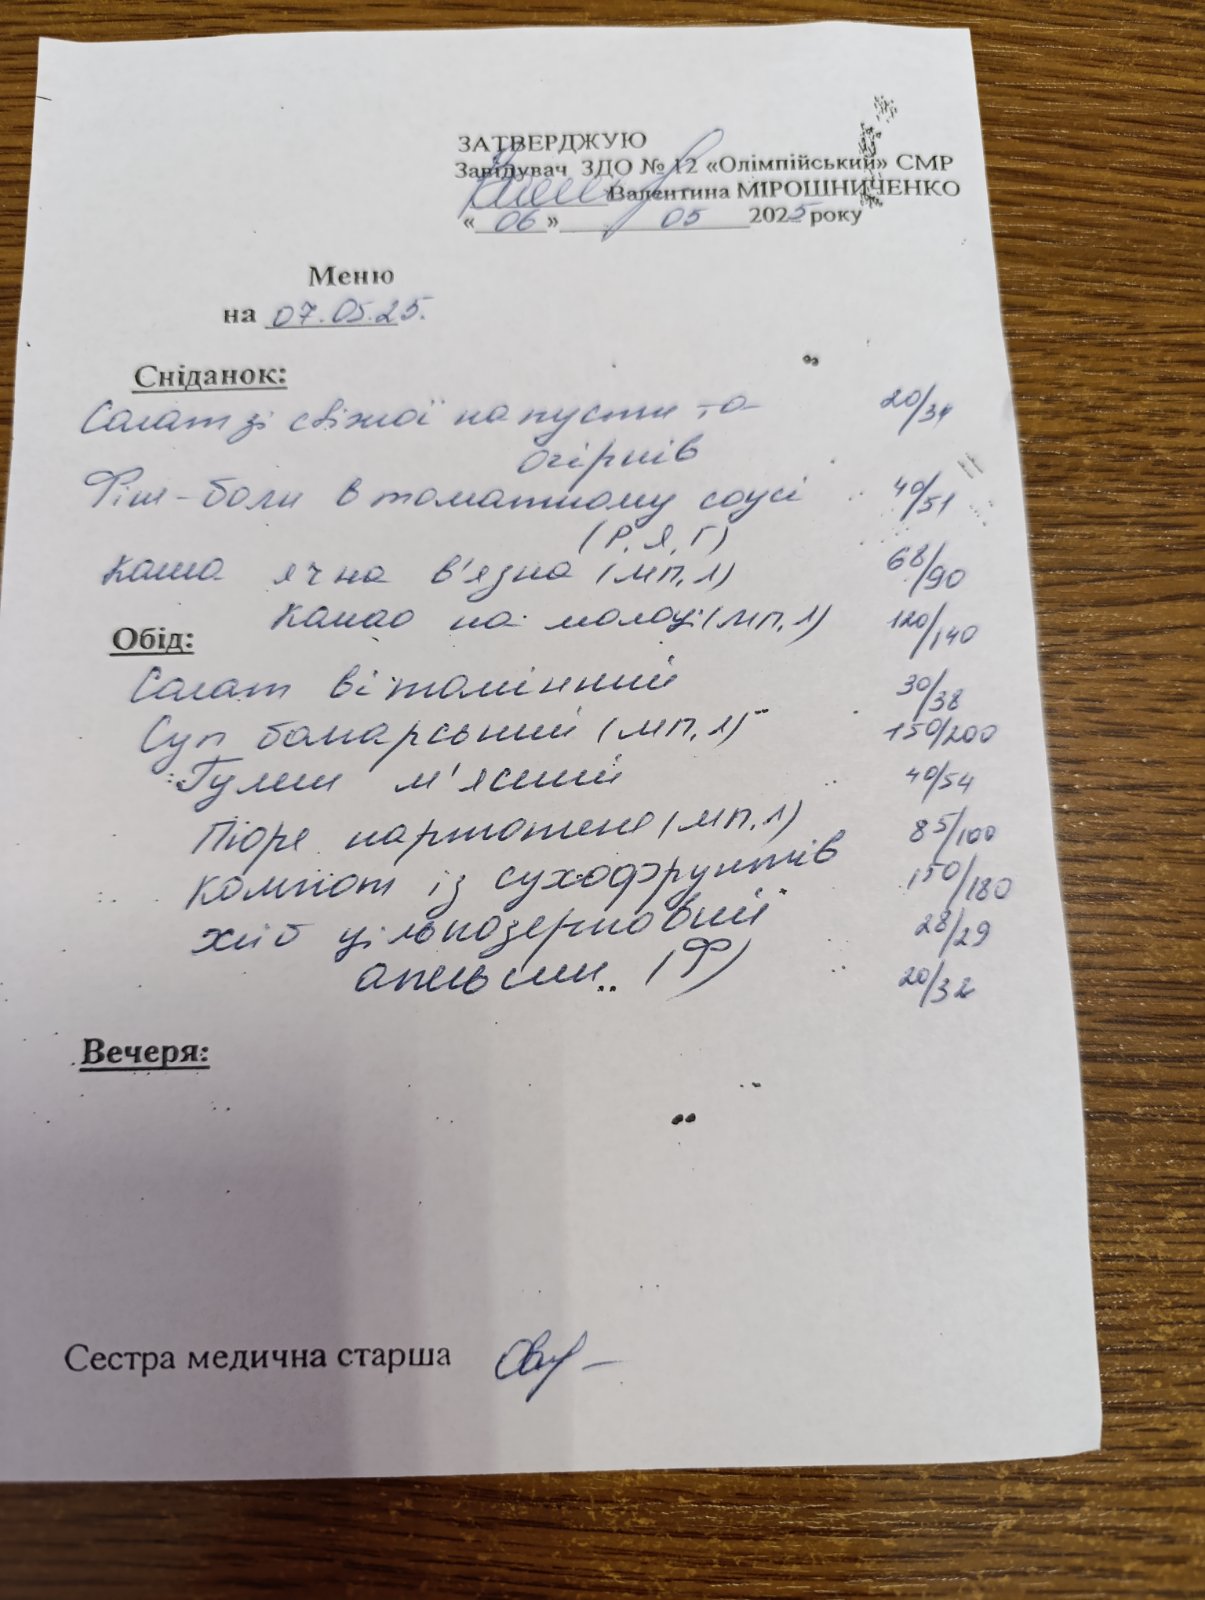 ЗАТВЕРДЖУЮ
Завідувач ЗДО № 12 «Олімпійський» СМР
Валентина МІРОШНИЧЕНКО
« 06 » 05 2025 року
Меню
на 07.05.25.
Сніданок:
Салат зі свіжої капусти та 20/34
огірків
Фіш-боли в томатному соусі 40/51
(Р, Я, Г)
Каша ячна в'язка (МП, Л) 68/90
Какао на молоці (МП, Л) 120/140
Обід:
Салат вітамінний 30/38
Суп болгарський (МП, Л) 150/200
Гуляш м'ясний 40/54
Пюре картопляне (МП, Л) 85/100
Компот із сухофруктів 150/180
Хліб цільнозерновий 28/29
апельсин (Ф) 20/32
Вечеря:
Сестра медична старша